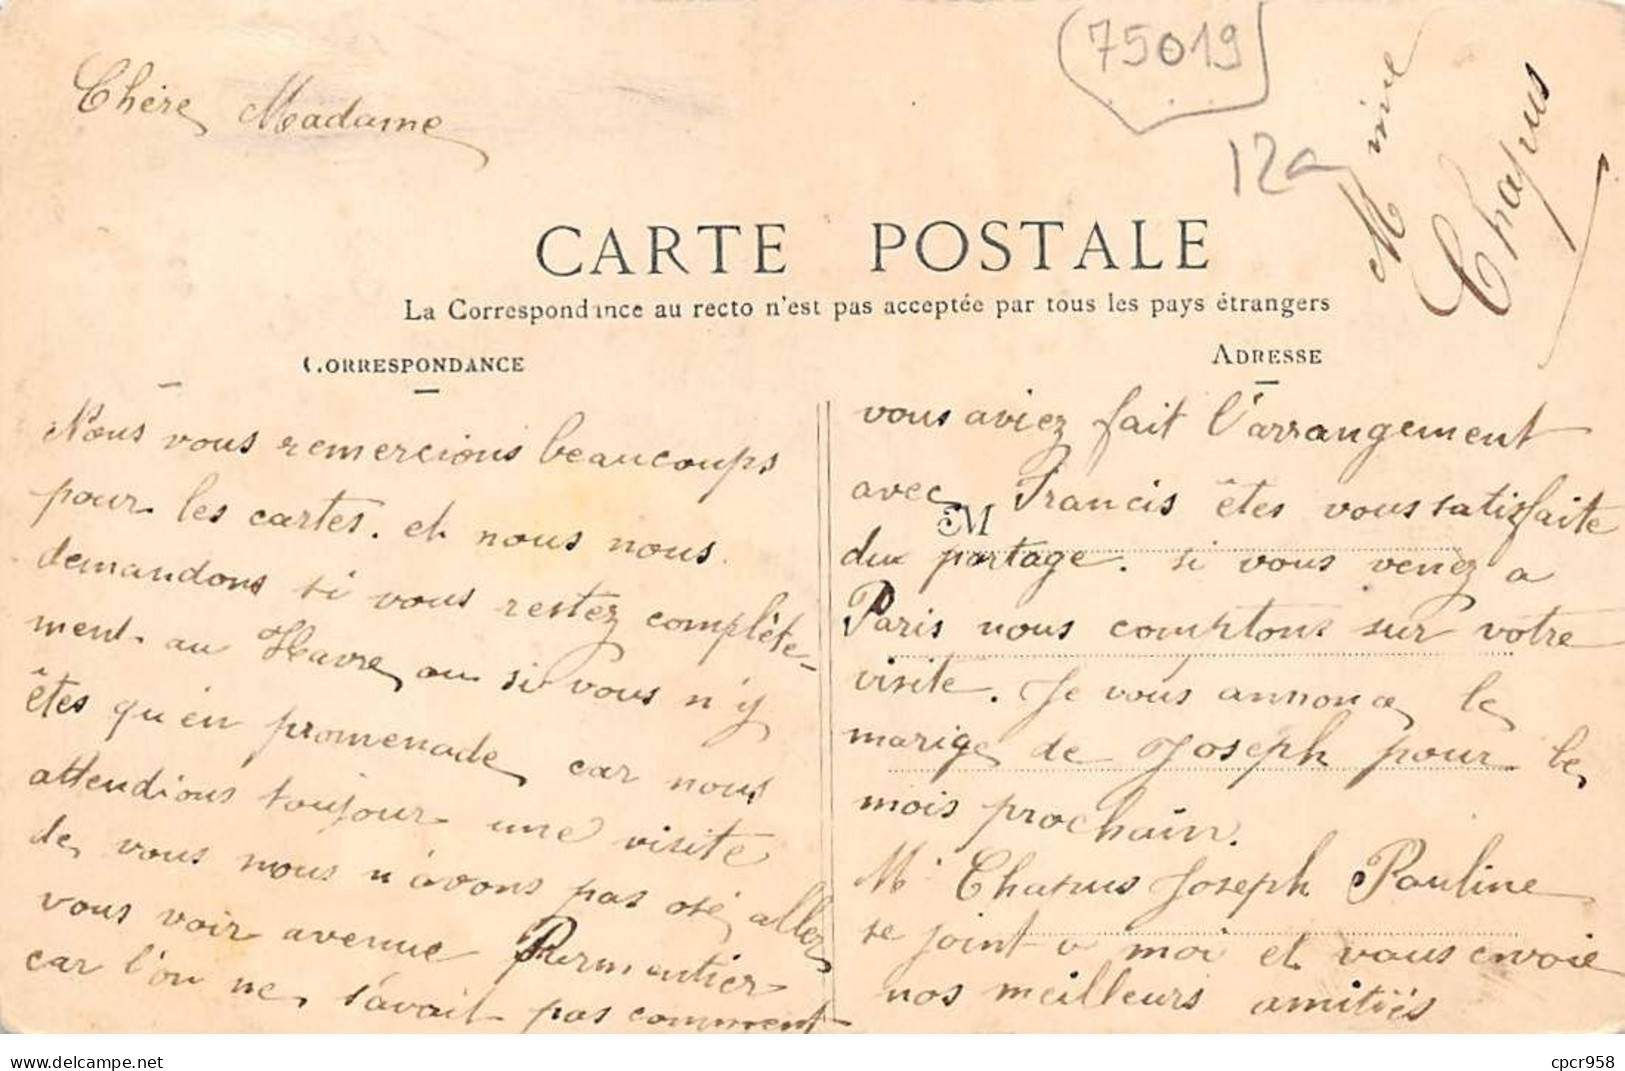 (75019)
12a
Chère Madame
CARTE POSTALE
La Correspondance au recto n'est pas acceptée par tous les pays étrangers
CORRESPONDANCE
Nous vous remercions beaucoups
pour les cartes. et nous nous
demandons si vous restez complète-
ment au Havre ou si vous n'y
êtes qu'en promenade car nous
attendions toujour une visite
de vous nous n'avons pas osé aller
vous voir avenue Parmentier
car l'on ne savait pas comment
ADRESSE
M
vous aviez fait l'arrangement
avec Francis êtes vous satisfaite
du partage. si vous venez a
Paris nous comptons sur votre
visite. Je vous annonce le
marige de Joseph pour le
mois prochain.
Mr Chapus Joseph Pauline
se joint a moi et vous envoie
nos meilleurs amitiés
Mme
Chapus
cpcr958